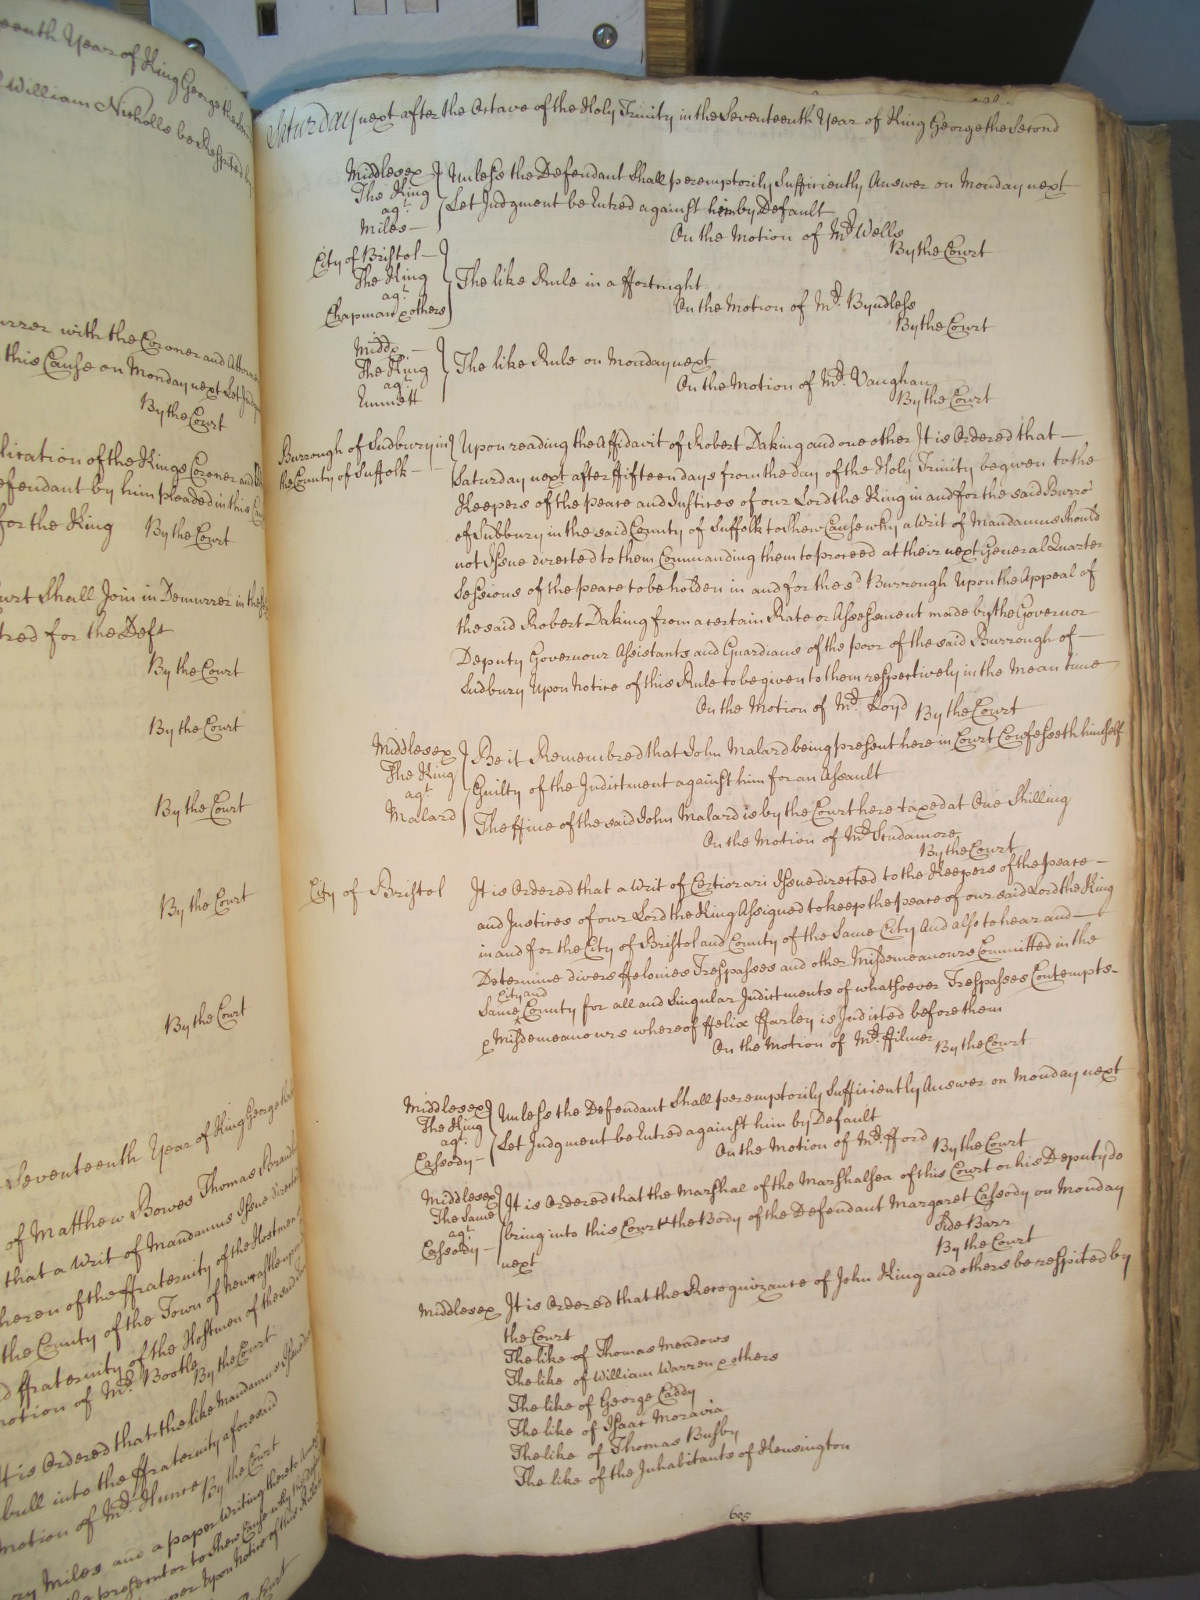 eenth Year of King George the
William Nicholls be Respited by
urrer with the Coroner and Attorn
this Cause on Monday next Let
By the Court
lication of the Kings Coroner and
efendant by him pleaded in this
for the King By the Court
urt Shall Join in Demurrer in the
tred for the Deft
By the Court
By the Court
By the Court
By the Court
By the Court
Seventeenth Year of King George
of Matthew Bowes Thomas
that a Writ of Mandamus Issue
of the ffraternity of the Hostmen
the County of the Town of Newcastle upon
ffraternity of the Hostmen of the said
motion of Mr. Bootle By the Court
It is Ordered that the like Mandamus
bull into the ffraternity aforesaid
motion of Mr. By the Court
ry Miles and a paper Writing thereto
prosecutor to Shew Cause why
upon Notice of this Rule
Saturday next after the Octave of the Holy Trinity in the Seventeenth Year of King George the Second
Middlesex Unless the Defendant Shall peremptorily Sufficiently Answer on Monday next
The King
agt. Let Judgment be Entred against him by Default
Miles — On the Motion of Mr. Wells
By the Court
City of Bristol —
The King The like Rule in a ffortnight
agt.
Chapman & others On the Motion of Mr. Byndless
By the Court
Middx. —
The King The like Rule on Monday next
agt. On the Motion of Mr. Vaughan
Emmett By the Court
Burrough of Sudbury in Upon reading the Affidavit of Robert Daking and one other It is Ordered that —
the County of Suffolk — Saturday next after ffifteen days from the day of the Holy Trinity be given to the
Keepers of the peace and Justices of our Lord the King in and for the said Burro'
of Subbury in the said County of Suffolk to Shew Cause why a Writ of Mandamus Should
not Issue directed to them Commanding them to proceed at their next General Quarter
Sessions of the peace to be holden in and for the sd. Burrough Upon the Appeal of
the said Robert Daking from a certain Rate or Assessment made by the Governor
Deputy Governour Assistants and Guardians of the poor of the said Burrough of —
Sudbury Upon Notice of this Rule to be given to them respectively in the Mean time
On the Motion of Mr. Loyd By the Court
Middlesex Be it Remembred that John Malard being present here in Court Confesseth himself
The King
agt. Guilty of the Indictment against him for an Assault
Malard The ffine of the said John Malard is by the Court here taxed at One Shilling
On the Motion of Mr. Scudamore
By the Court
City of Bristol It is Ordered that a Writ of Certiorari Issue directed to the Keepers of the peace —
and Justices of our Lord the King Assigned to keep the peace of our said Lord the King
in and for the City of Bristol and County of the Same City And also to hear and —
Determine divers ffelonies Trespasses and other Misdemeanours Committed in the
City and
Same County for all and Singular Indictments of whatsoever Trespasses Contempts -
& Misdemeanours whereof ffelix ffarley is Indicted before them
On the Motion of Mr. ffilmer By the Court
Middlesex Unless the Defendant Shall peremptorily Sufficiently Answer on Monday next
The King
agt. Let Judgment be Entred against him by Default
Cassody — On the Motion of Mr. fford By the Court
Middlesex It is Ordered that the Marshal of the Marshalsea of this Court or his Deputy do
The Same
agt. bring into this Court the Body of the Defendant Margaret Cassody on Monday
Cassody — next Side Barr
By the Court
Middlesex It is Ordered that the Recognizance of John King and others be respited by
the Court
The like of Thomas Meadows
The like of William Warren & others
The like of George Caddy
The like of Isaac Moravia
The like of Thomas Busby
The like of the Inhabitants of Kensington
605